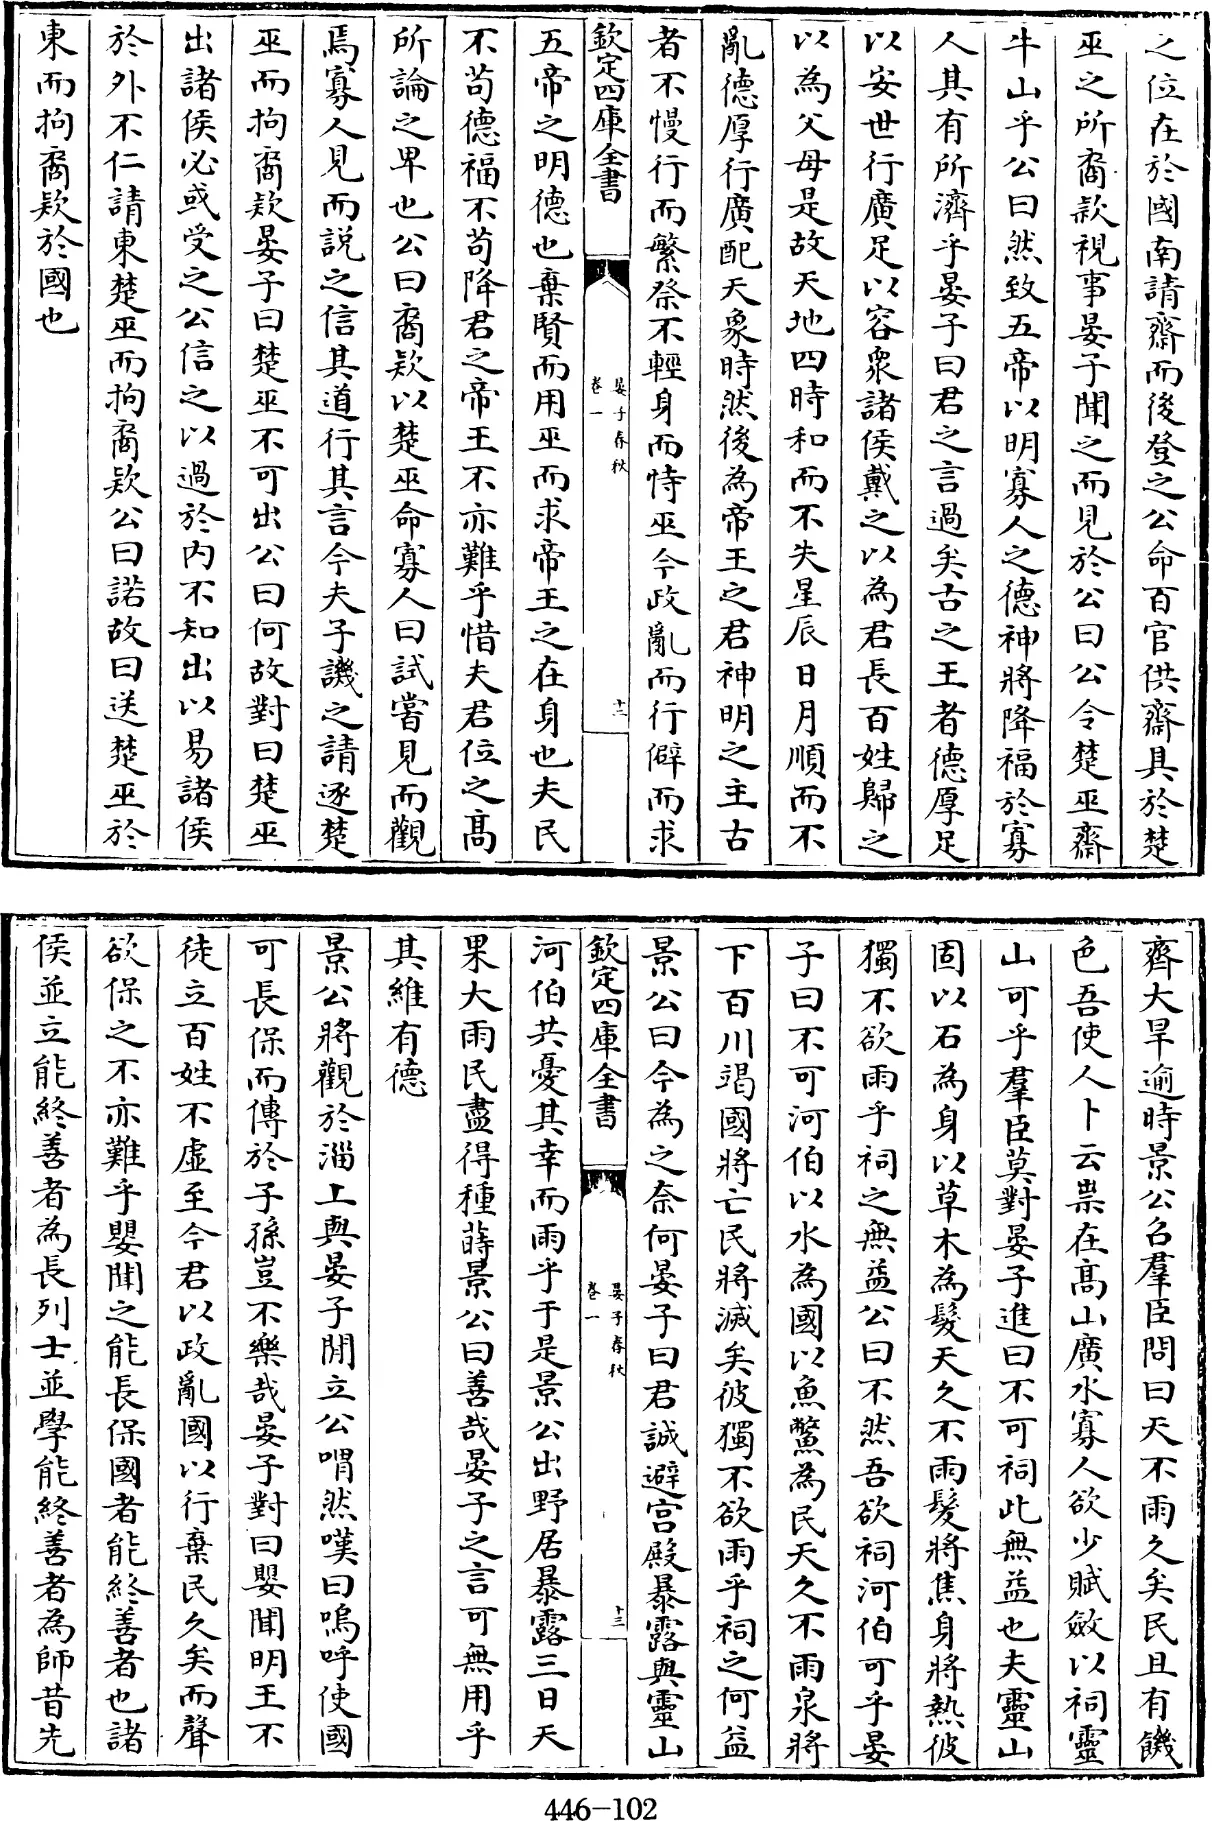 之位在於國南請齋而後登之公命百官供齋具於楚
巫之所裔款視事晏子聞之而見於公曰公令楚巫齋
牛山乎公曰然致五帝以明寡人之德神將降福於寡
人其有所濟乎晏子曰君之言過矣古之王者德厚足
以安世行廣足以容衆諸侯戴之以為君長百姓歸之
以為父母是故天地四時和而不失星辰日月順而不
亂德厚行廣配天象時然後為帝王之君神明之主古
者不慢行而繁祭不輕身而恃巫今政亂而行僻而求
欽定四庫全書
晏子春秋
卷一
十二
五帝之明德也棄賢而用巫而求帝王之在身也夫民
不苟德福不苟降君之帝王不亦難乎惜夫君位之高
所論之卑也公曰裔欵以楚巫命寡人曰試嘗見而觀
焉寡人見而説之信其道行其言今夫子譏之請逐楚
巫而拘裔欵晏子曰楚巫不可出公曰何故對曰楚巫
出諸侯必或受之公信之以過於内不知出以易諸侯
於外不仁請東楚巫而拘裔欵公曰諾故曰送楚巫於
東而拘裔欵於國也
齊大旱逾時景公召羣臣問曰天不雨久矣民且有饑
色吾使人卜云祟在髙山廣水寡人欲少賦斂以祠靈
山可乎羣臣莫對晏子進曰不可祠此無益也夫靈山
固以石為身以草木為髮天久不雨髮將焦身將熱彼
獨不欲雨乎祠之無益公曰不然吾欲祠河伯可乎晏
子曰不可河伯以水為國以魚鱉為民天久不雨泉將
下百川竭國將亡民將滅矣彼獨不欲雨乎祠之何益
景公曰今為之奈何晏子曰君誠避宫殿暴露與靈山
欽定四庫全書
晏子春秋
卷一
十三
河伯共憂其幸而雨乎于是景公出野居暴露三日天
果大雨民盡得種蒔景公曰善哉晏子之言可無用乎
其維有德
景公將觀於淄上與晏子閒立公喟然嘆曰嗚呼使國
可長保而傳於子孫豈不樂哉晏子對曰嬰聞明王不
徒立百姓不虛至今君以政亂國以行棄民久矣而聲
欲保之不亦難乎嬰聞之能長保國者能終善者也諸
侯並立能終善者為長列士並學能終善者為師昔先
446-102